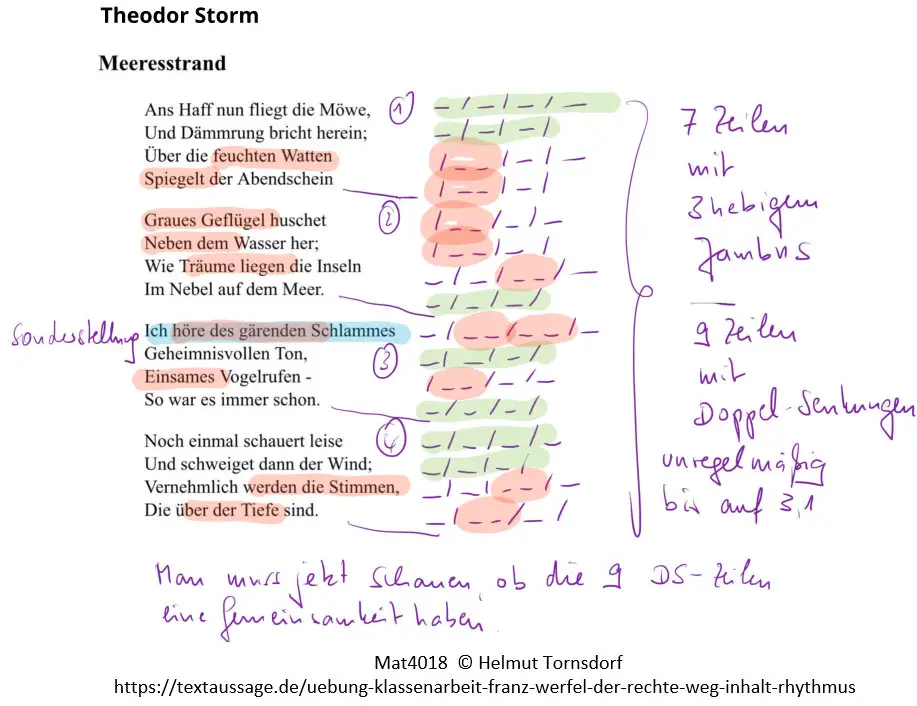 Theodor Storm
Meeresstrand
Ans Haff nun fliegt die Möwe,
Und Dämmrung bricht herein;
Über die feuchten Watten
Spiegelt der Abendschein
Graues Geflügel huschet
Neben dem Wasser her;
Wie Träume liegen die Inseln
Im Nebel auf dem Meer.
Sonderstellung
Ich höre des gärenden Schlammes
Geheimnisvollen Ton,
Einsames Vogelrufen -
So war es immer schon.
Noch einmal schauert leise
Und schweiget dann der Wind;
Vernehmlich werden die Stimmen,
Die über der Tiefe sind.
1
2
3
4
7 Zeilen
mit
3hebigem
Jambus
9 Zeilen
mit
Doppel-Senkungen
unregelmäßig
bis auf 3,1
Man muss jetzt schauen, ob die 9 DS-Zeilen
eine Gemeinsamkeit haben.
Mat4018 © Helmut Tornsdorf
https://textaussage.de/uebung-klassenarbeit-franz-werfel-der-rechte-weg-inhalt-rhythmus